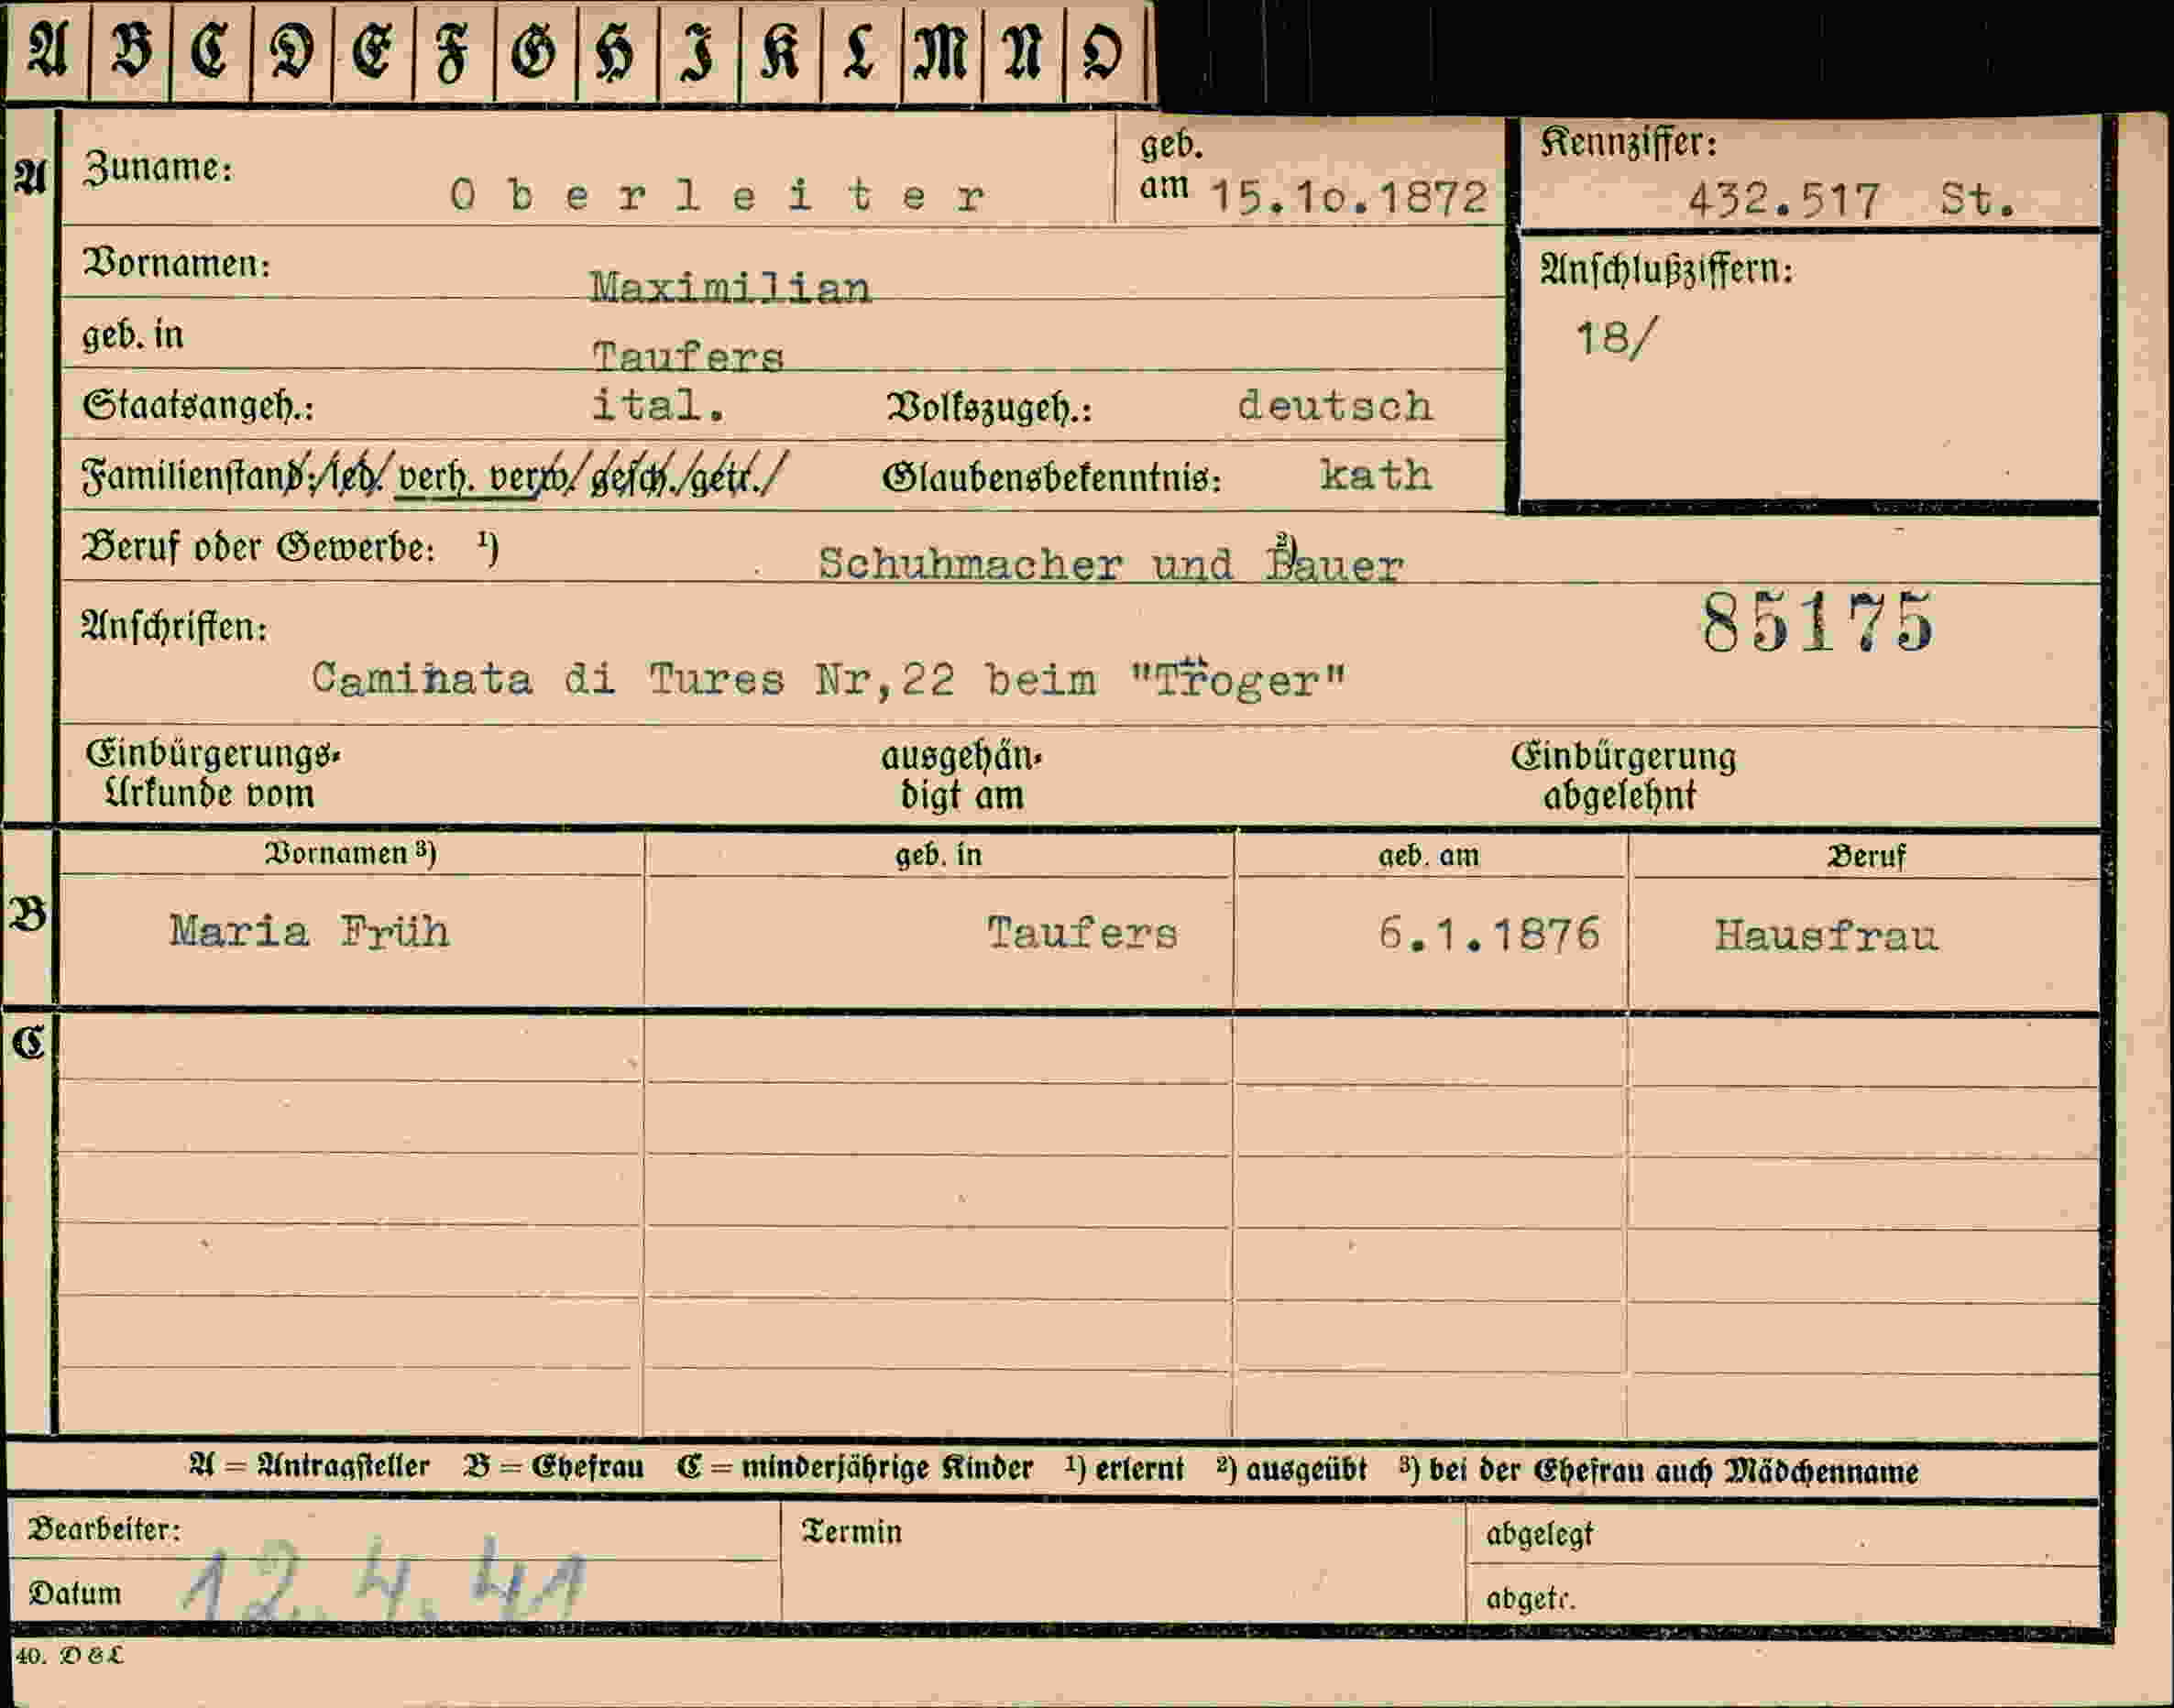 A B C D E F G H I K L M N O
A
Zuname: Oberleiter
geb. am 15.10.1872
Kennziffer: 432.517 St.
Vornamen: Maximilian
Anschlußziffern:
18/
geb. in Taufers
Staatsangeh.: ital. Volkszugeh.: deutsch
Familienstand: led. verh. verw. gesch. getr. Glaubensbekenntnis: kath
Beruf oder Gewerbe: ¹) Schuhmacher und ²) Bauer
85175
Anschriften:
Caminata di Tures Nr,22 beim "Tröger"
Einbürgerungs-
Urkunde vom
ausgehän-
digt am
Einbürgerung
abgelehnt
B
Vornamen ³) geb. in geb. am Beruf
Maria Früh Taufers 6.1.1876 Hausfrau
C
A = Antragsteller B = Ehefrau C = minderjährige Kinder ¹) erlernt ²) ausgeübt ³) bei der Ehefrau auch Mädchenname
Bearbeiter: Termin abgelegt
Datum 12.4.41 abgetr.
40. D & L